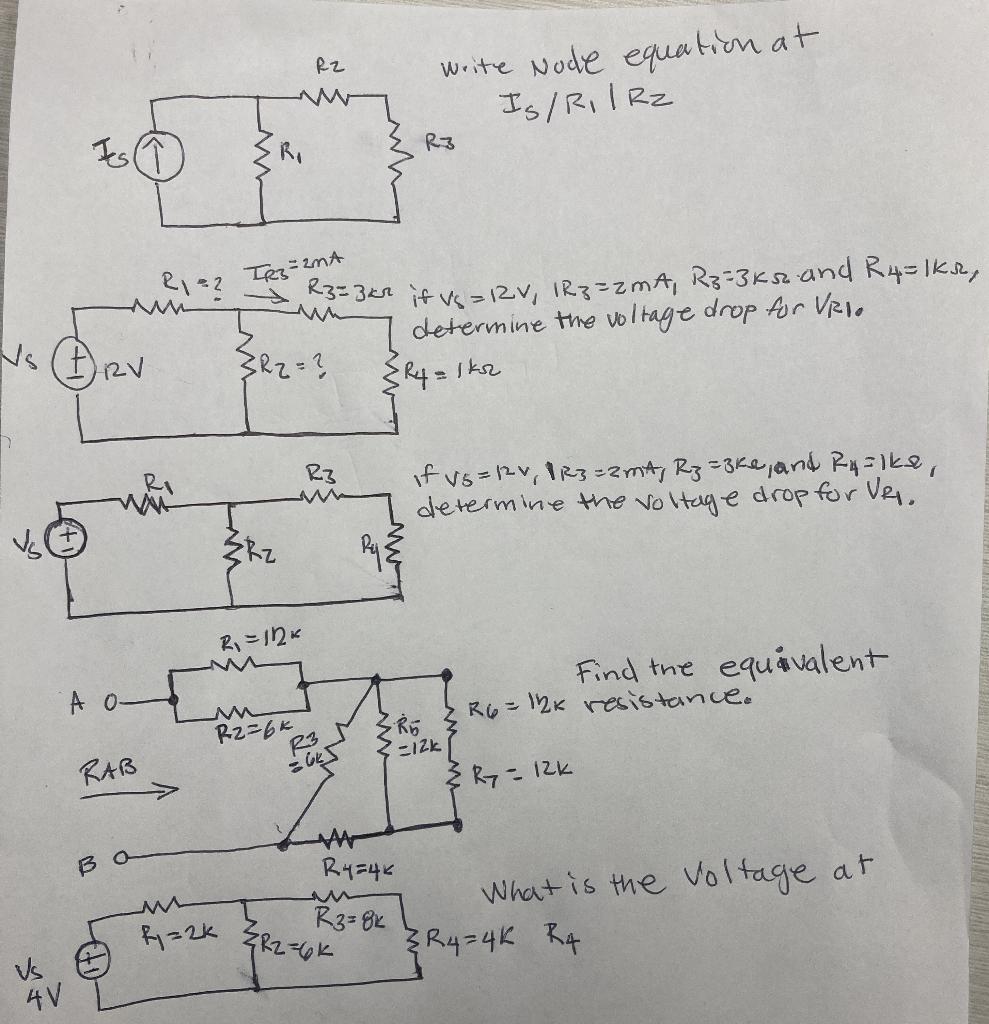 R2
Write Node equation at
Is/R1/R2
Is
R1
R3
R1=?
IR3=2mA
R3=3kΩ
if Vs=12V, IR3=2mA, R3=3KΩ and R4=1KΩ,
determine the voltage drop for VR1.
Vs
12V
R2=?
R4=1kΩ
R1
R3
if Vs=12V, IR3=2mA, R3=3kΩ, and R4=1kΩ,
determine the voltage drop for VR1.
Vs
R2
R4
R1=12K
Find the equivalent
resistance.
A
R2=6K
R3
=6K
R5
=12K
R6=12K
RAB
R7=12K
B
R4=4K
What is the voltage at
R4
R1=2K
R3=8K
R2=6K
R4=4K
Vs
4V